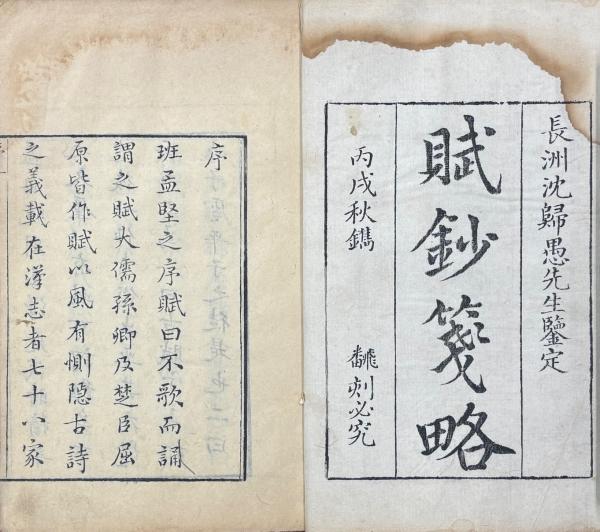 長洲沈歸愚先生鑒定
賦鈔箋略
丙戌秋鐫
翻刻必究
序
班孟堅之序賦曰不歌而誦
謂之賦大儒孫卿及楚臣屈
原皆作賦以風有惻隠古詩
之義載在漢志者七十八家